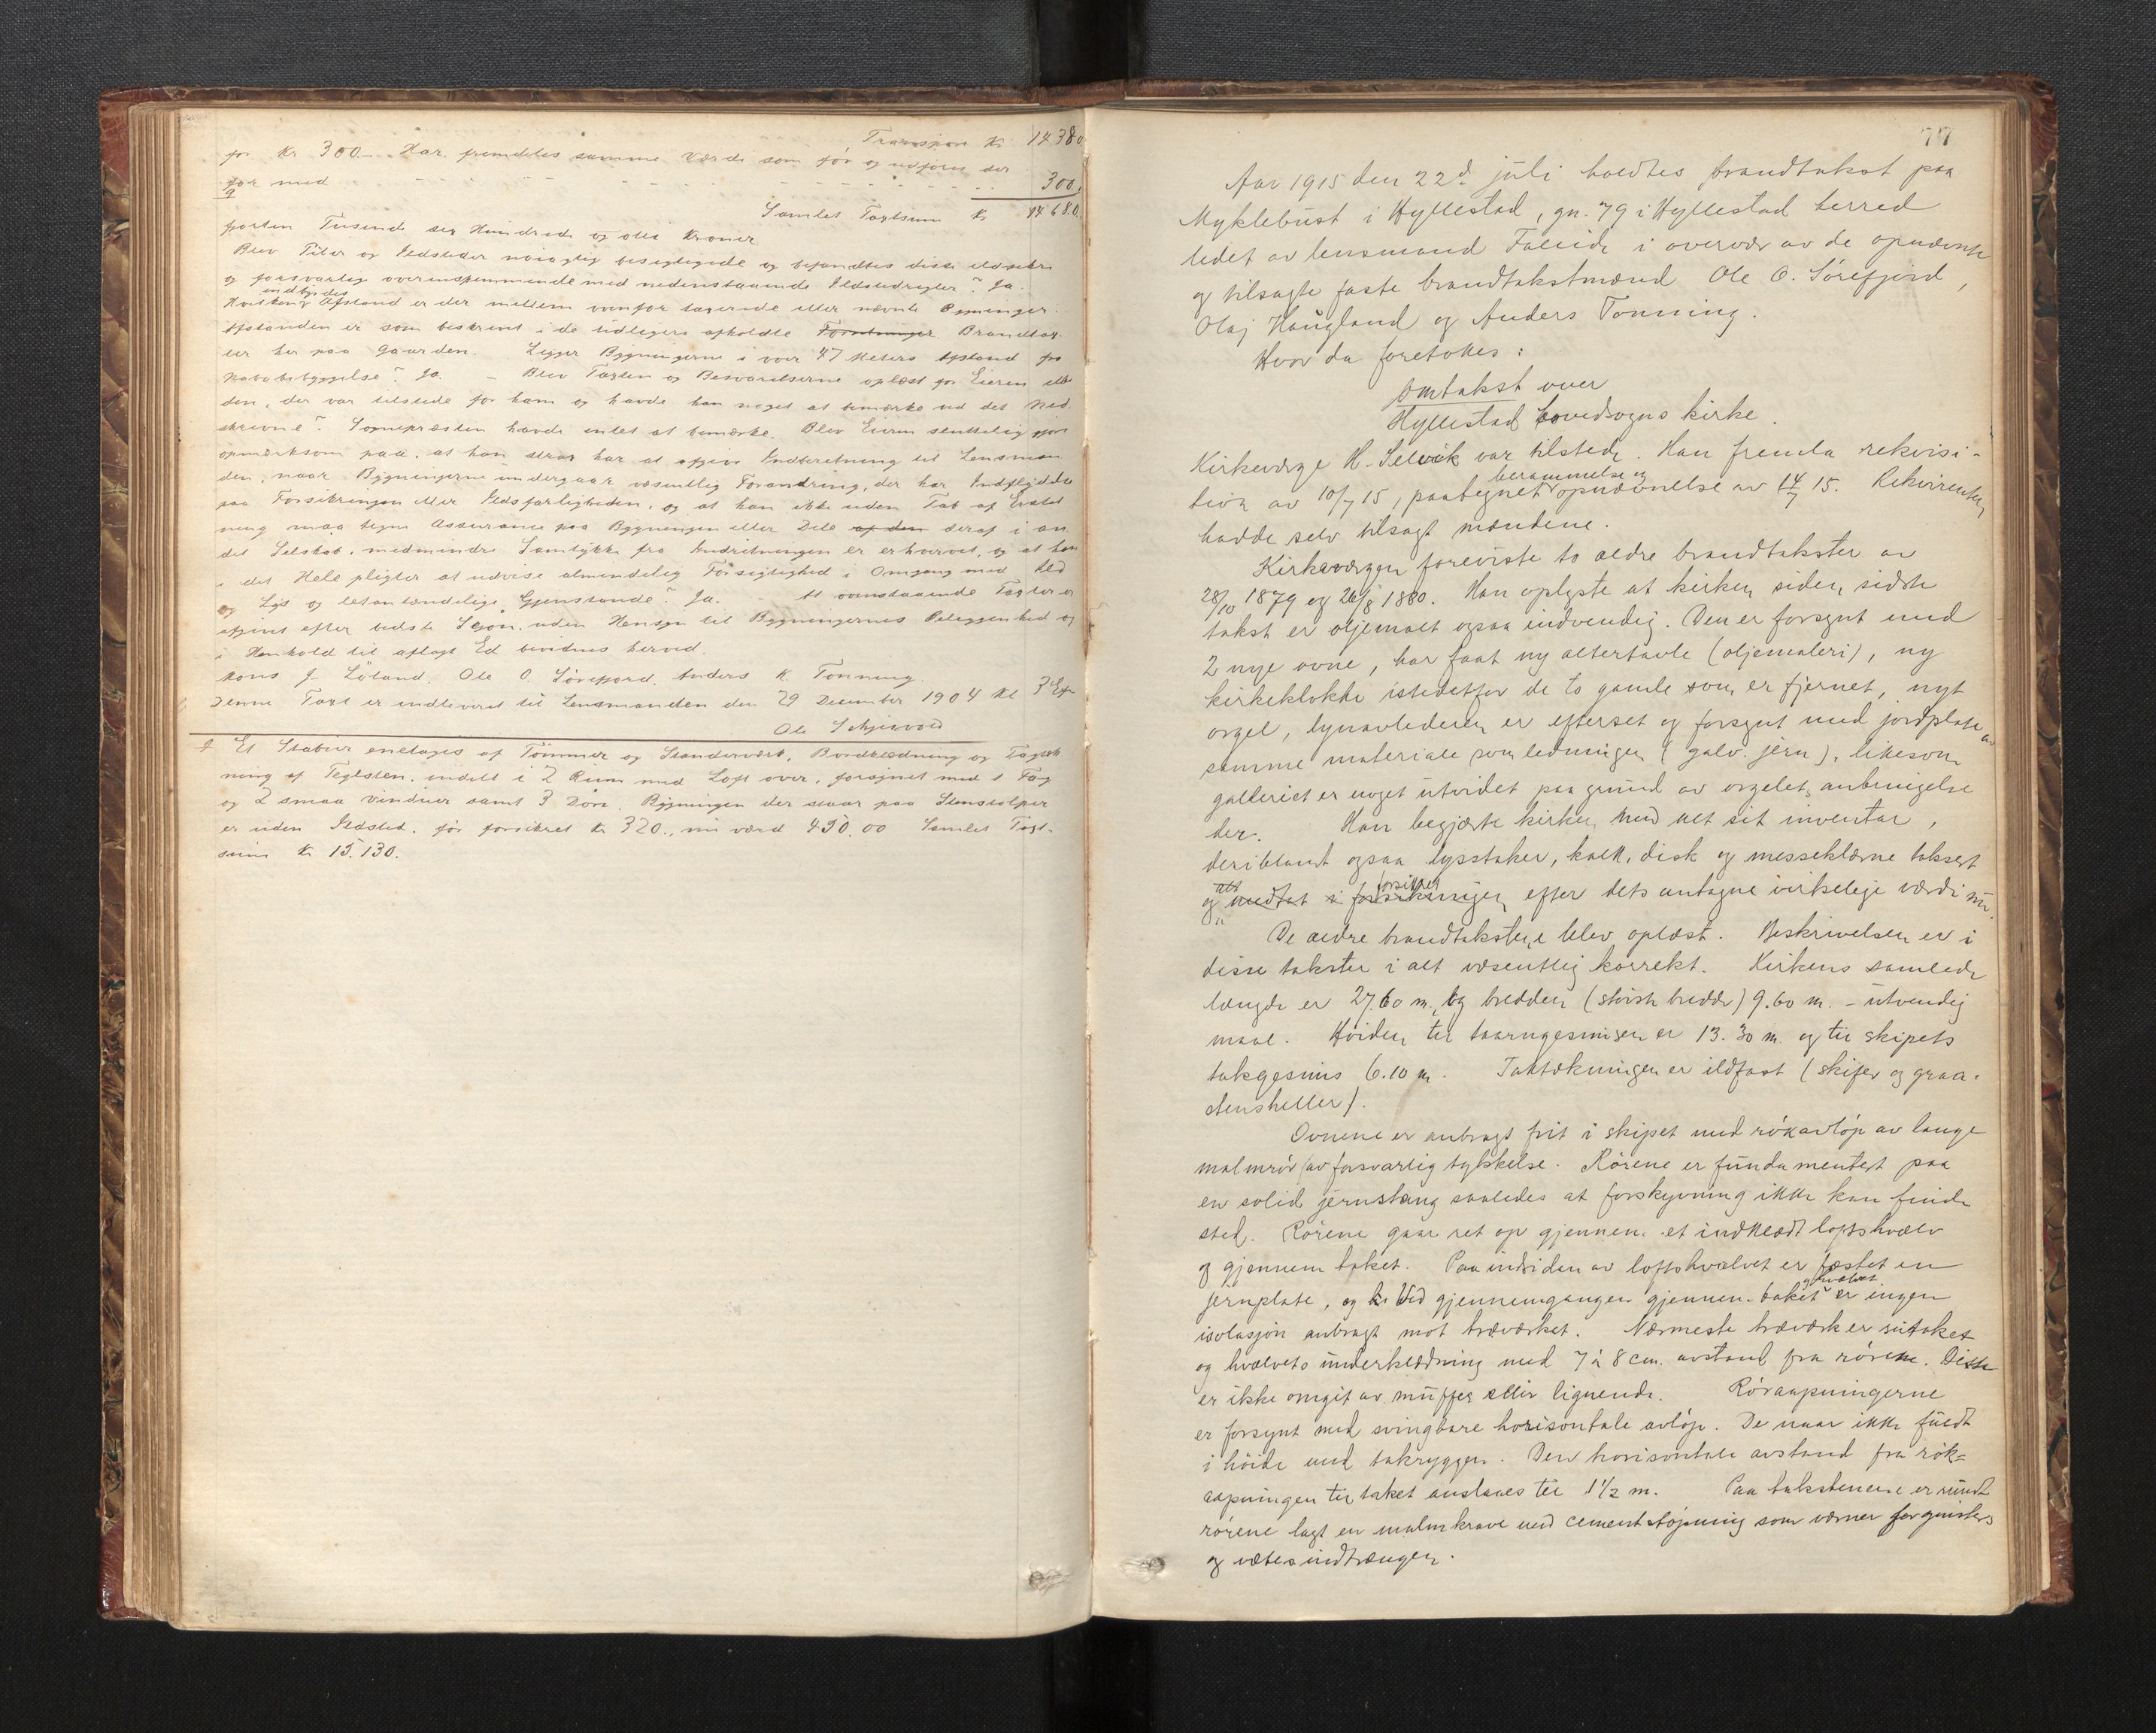 Transport Kr. 14380
for Kr 300.- Har fremdeles samme Værdi som før og udføres der
for med - - - - - - - - - - - 300,
Samlet Taxtsum Kr 14680.
fjorten Tusinde sex Hundrede og otti Kroner
Blev Piber og Ildsteder nøiagtig besigtigede og befandtes disse ildsikre
og forsvarlig overensstemmende med nedenstaaende Ildstedregler? Ja.
Hvilken indbyrdes Afstand er der mellem ovenfor taxerede eller nævnte Bygninger.
Afstanden er som beskrevet i de tidligere afholdte Forretninger Brandtax-
ter her paa Gaarden. Ligger Bygningerne i over 47 Meters Afstand fra
Nabobebyggelse? Ja. - Blev Taxten og Besvarelserne oplæst for Eieren eller
den, der var tilstede for ham og havde han noget at bemærke ved det Ned-
skrevne? Sognepræsten havde intet at bemærke. Blev Eieren sluttelig gjort
opmærksom paa, at han strax har at afgive Indberetning til Lensman
den, naar Bygningerne undergaar væsentlig Forandring, der har Indflydelse
paa Forsikringen eller Ildsfarligheden, og at han ikke uden Tab af Erstat
ning maa tegne Assurance paa Bygningen eller Dele af den deraf i an
det Selskab, medmindre Samtykke fra Indretningen er erhvervet, og at han
i det Hele pligter at udvise almindelig Forsigtighed i Omgang med Ild
og Lys og letantændelige Gjenstande? Ja. - At ovenstaaende Taxter er
afgivet efter bedste Skjøn, uden Hensyn til Bygningernes Beliggenhed og
i Henhold til aflagt Ed bevidnes herved.
Mons J Løland. Ole O. Sørefjord. Anders K. Tonning.
Denne Taxt er indleveret til Lensmanden den 29 December 1904 Kl 3 Efm
Ole Schjervold
Et Stabur enetages af Tømmer og Standerværk, Bordklædning og Tagtæk
ning af Teglsten, indelt i 2 Rum med Loft over, forsynet med 1 Fag
og 2 smaa Vinduer samt 3 Døre. Bygningen der staar paa Stenstolper
er uden Ildsted. før forsikret Kr 320., nu værd 450,00 Samlet Taxt-
sum Kr 15.130.
77
Aar 1915 den 22d. juli holdtes brandtakst paa
Myklebust i Hyllestad, gn. 79 i Hyllestad herred
ledet av lensmand Faleide i overvær av de opnævnte
og tilsagte faste brandtakstmænd Ole O. Sørefjord,
Olaj Haugland og Anders Tonning.
Hvor da foretokes:
Omtakst over
Hyllestad hovedsogns kirke.
Kirkeverge H. Selvik var tilstede. Han fremla rekvisi-
tion av 10/7 15, paategnet berammelse og opnævnelse av 14/7 15. Rekvirenten
hadde selv tilsagt mændene.
Kirkevergen foreviste to ældre brandtakster av
28/10 1879 og 26/8 1880. Han oplyste at kirken siden sidste
takst er oljemalt ogsaa indvendig. Den er forsynt med
2 nye ovne, har faat ny altertavle (oljemaleri), ny
kirkeklokke istedetfor de to gamle som er fjernet, nyt
orgel, lynavlederen er efterset og forsynt med jordplate av
samme materiale som ledningen (galv. jern), likesom
galleriet er noget utvidet paa grund av orgelets anbringelse
der. Han begjærte kirken med alt sit inventar,
deriblandt ogsaa lysstaker, kalk, disk og messeklærne taksert
og alt medtat i forsikringen forsikret efter dets antagne virkelige værdi nu.
De ældre brandtakster blev oplæst. Beskrivelsen er i
disse takster i alt væsentlig korrekt. Kirkens samlede
længde er 27.60 m, og bredden (største bredde) 9.60 m. - utvendig
maal. Høiden til taarngesimsen er 13.30 m. og til skipets
takgesims 6.10 m. Taktækningen er ildfast (skifer og graa-
stensheller).
Ovnene er anbragt frit i skipet med røkavløp av lange
malmrør av forsvarlig tykkelse. Rørene er fundamentert paa
en solid jernstang saaledes at forskyvning ikke kan finde
sted. Rørene gaar ret op gjennem et indklædt loftshvælv
og gjennem taket. Paa indsiden av loftshvælvet er fæstet en
jernplate, og Ved gjennemgangen gjennem taket og hvælvet er ingen
isolasjon anbragt mot træverket. Nærmeste træverk er sutaket
og hvælvets underklædning med 7 à 8 cm. avstand fra rørene. Disse
er ikke omgit av muffer eller lignende. Røraapningerne
er forsynt med svingbare horisontale avløp. De naar ikke fuldt
i høide med takryggen. Den horisontale avstand fra røk-
aapningen til taket anslaaes til 1 1/2 m. Paa takstenene er rundt
rørene lagt en malmkrave med cementstøpning som værner for gnister
og vætes indtrængen.